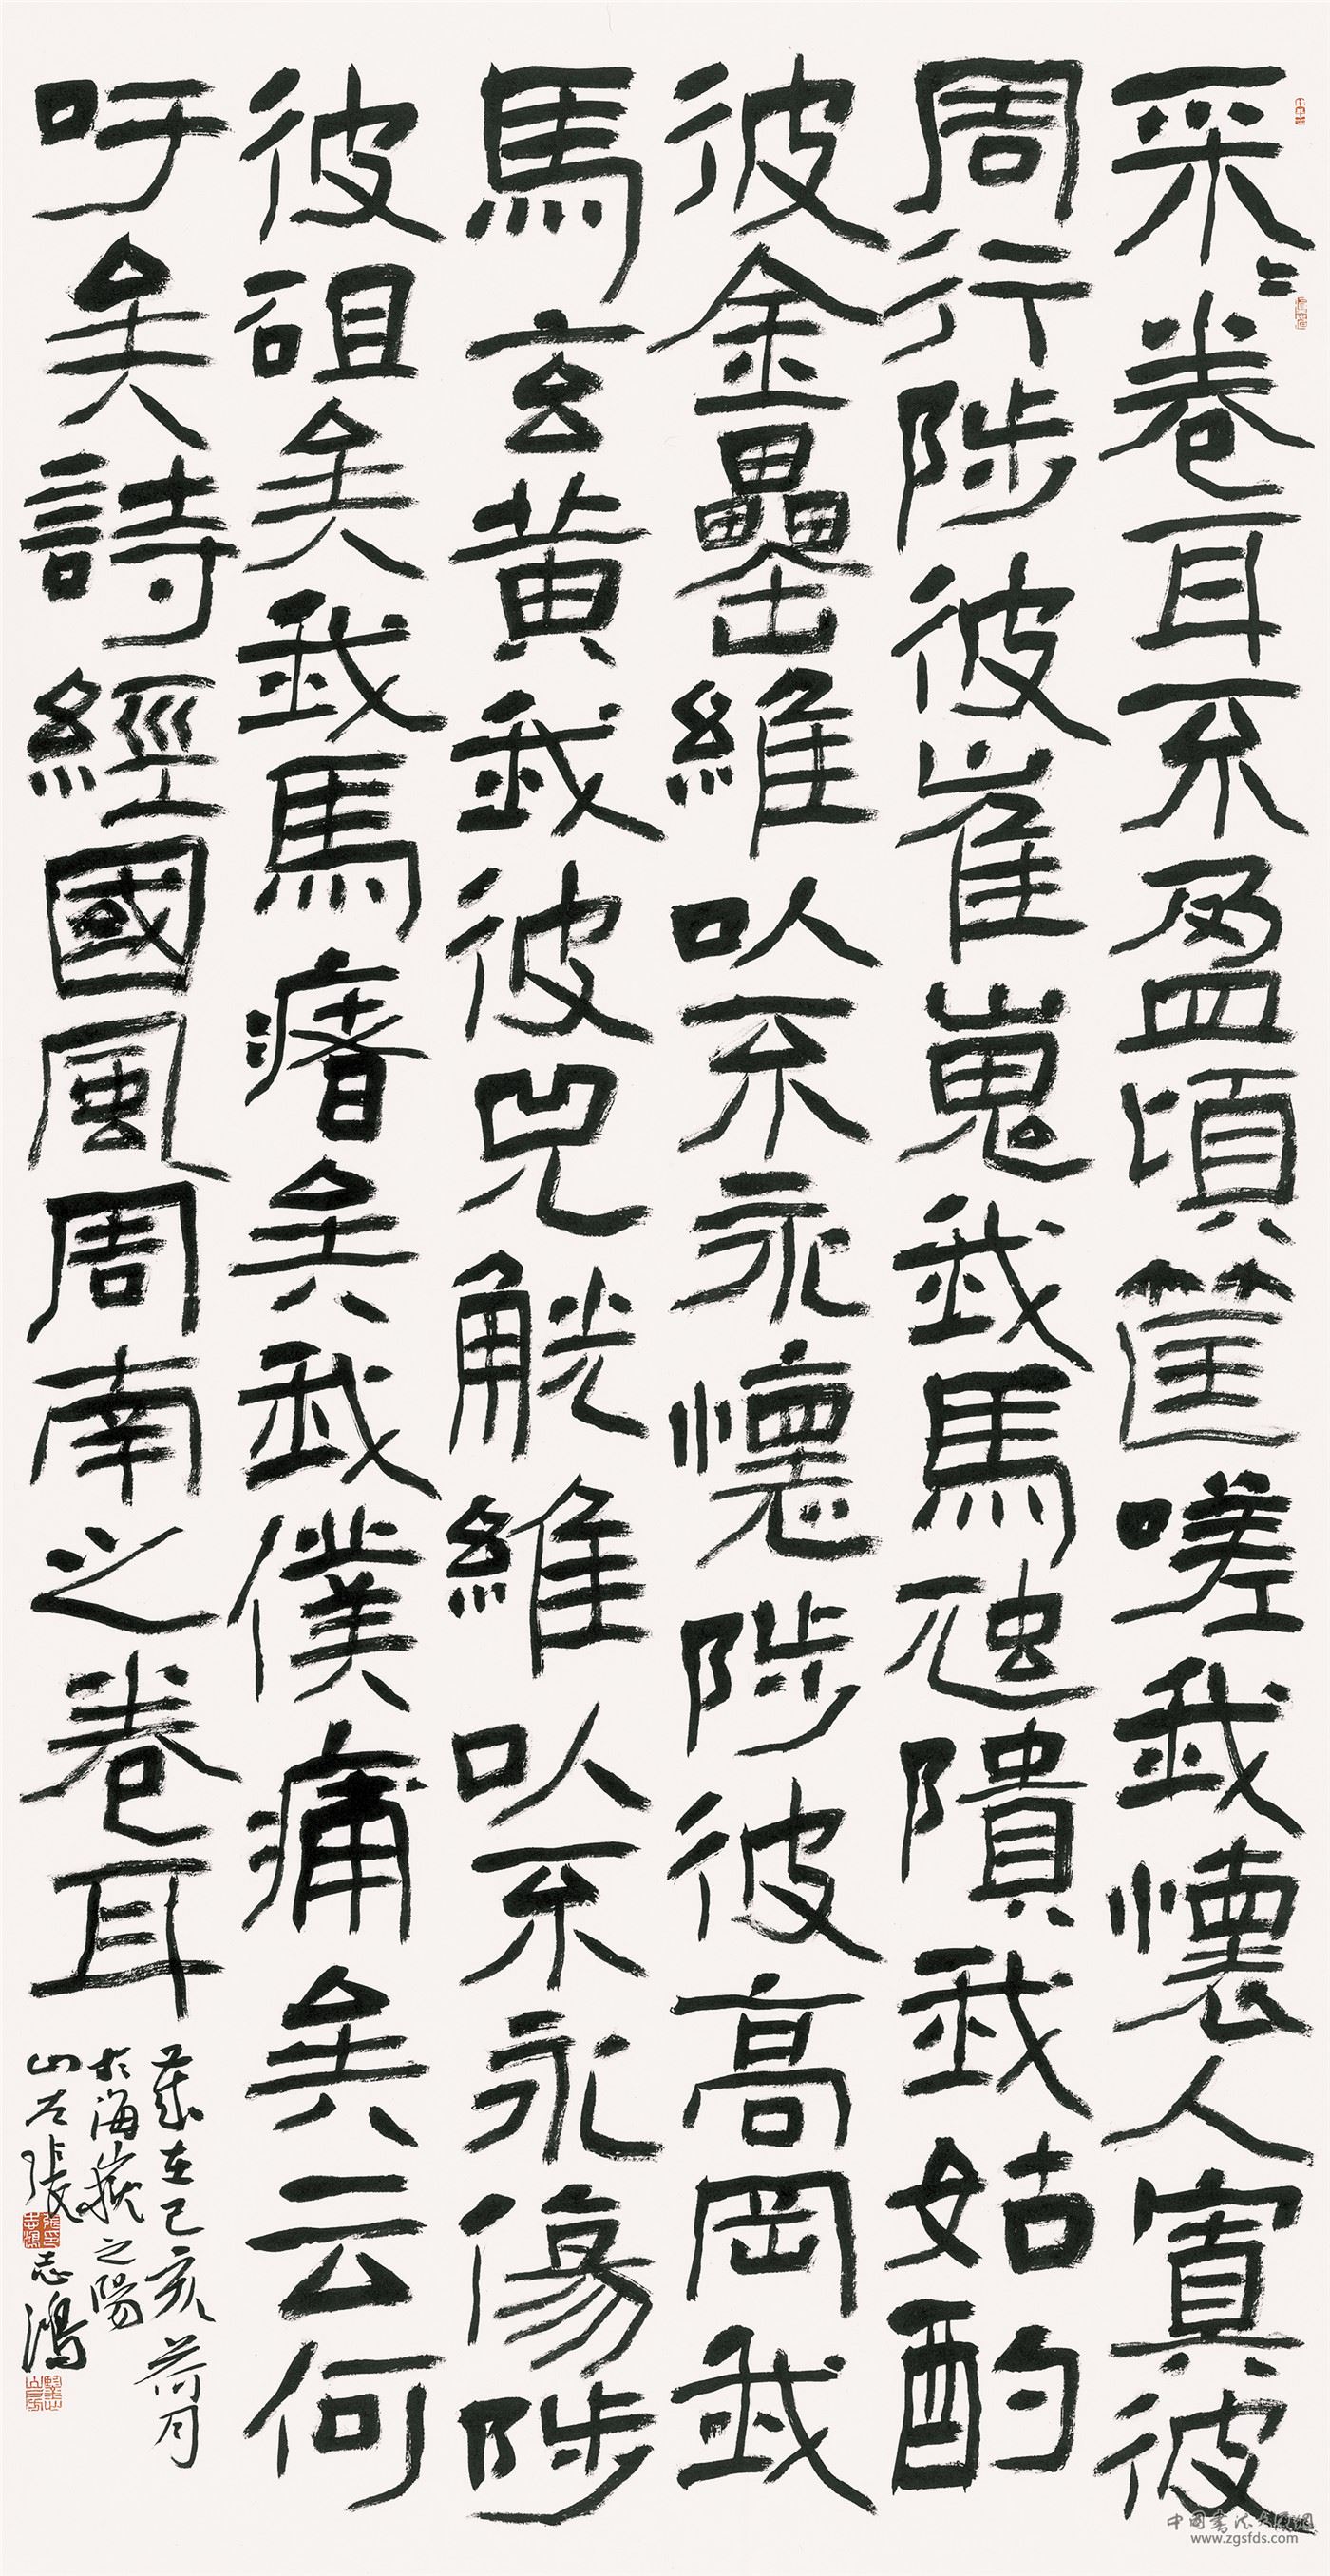 采〻卷耳不盈頃筐嗟我懷人寘彼
周行陟彼崔嵬我馬虺隤我姑酌
彼金罍維以不永懷陟彼高岡我
馬玄黃我彼兕觥維以不永傷陟
彼砠矣我馬瘏矣我僕痡矣云何
吁矣詩經國風周南之卷耳
歲在己亥荷月
於海嶽之陽
山左張志鴻
www.zgsfds.com